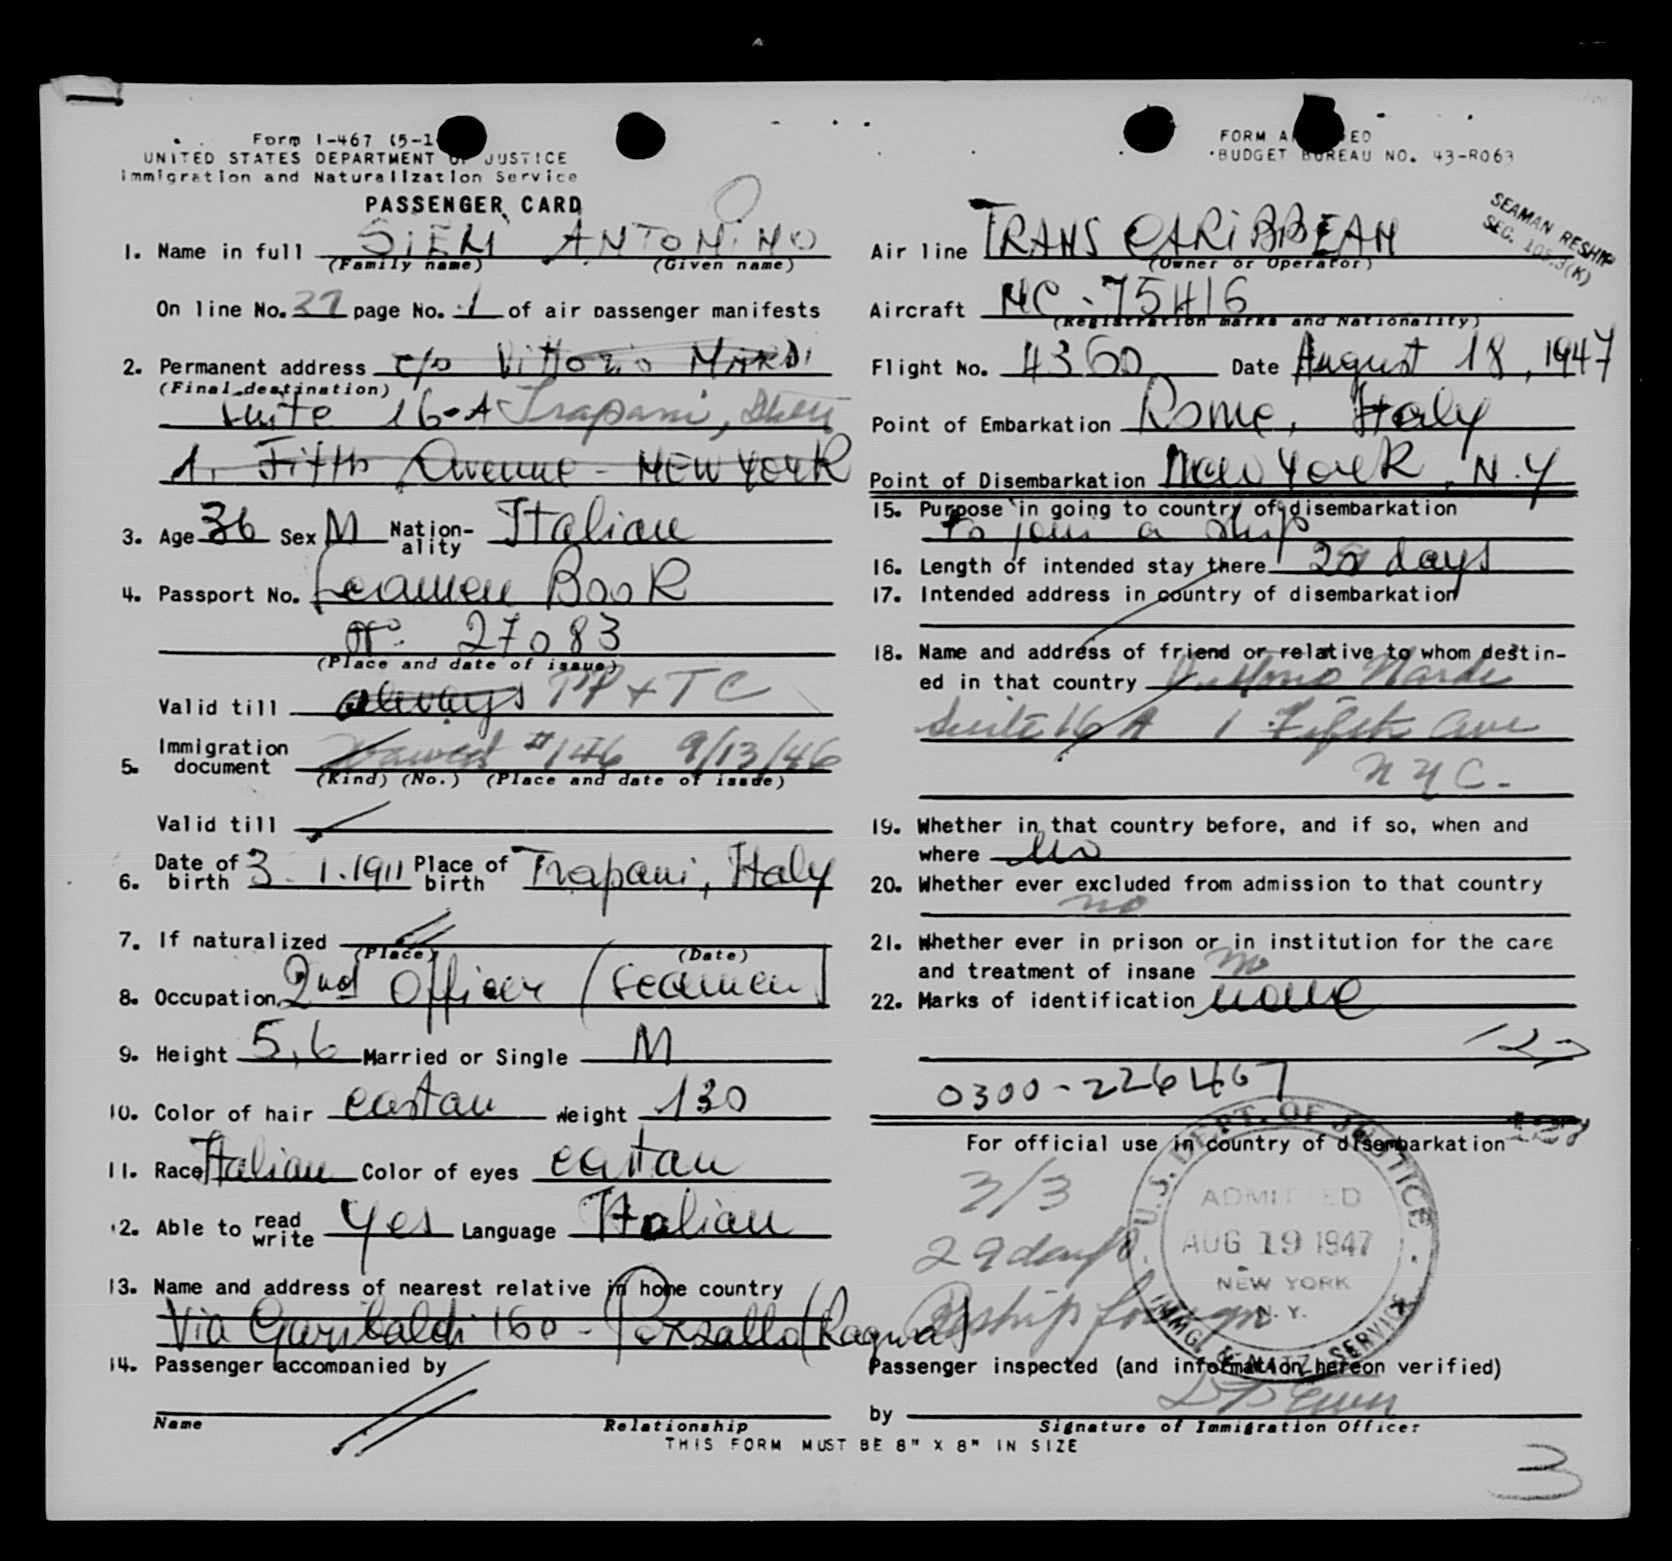 Form I-467 (5-1
UNITED STATES DEPARTMENT OF JUSTICE
Immigration and Naturalization Service
PASSENGER CARD
1. Name in full SIEM ANTONINO
(Family name) (Given name)
On line No. 37 page No. 1 of air passenger manifests
2. Permanent address c/o Vittorio NARDI
(Final destination)
Suite 16-A Trapani,
1. Fifth Avenue - NEW YORK
3. Age 36 Sex M Nationality Italian
4. Passport No. Seamen Book
No. 27083
(Place and date of issue)
Valid till always PP + TC
5. Immigration document Waived #146 9/13/46
(Kind) (No.) (Place and date of issue)
Valid till
6. Date of birth 3.1.1911 Place of birth Trapani, Italy
7. If naturalized
(Place) (Date)
8. Occupation 2nd Officer (seamen)
9. Height 5,6 Married or Single M
10. Color of hair castan Weight 130
11. Race Italian Color of eyes castan
12. Able to read write Yes Language Italian
13. Name and address of nearest relative in home country
Via Garibaldi 160 - Pozzallo (Ragusa)
14. Passenger accompanied by
Name Relationship
THIS FORM MUST BE 8" X 8" IN SIZE
FORM A ED
BUDGET BUREAU NO. 43-R063
SEAMAN RESHIP
SEC. 105.3(K)
Air line TRANS CARIBBEAN
(Owner or Operator)
Aircraft NC-75416
(Registration marks and Nationality)
Flight No. 4360 Date August 18, 1947
Point of Embarkation Rome, Italy
Point of Disembarkation New York, N.Y
15. Purpose in going to country of disembarkation
to join a ship
16. Length of intended stay there 29 days
17. Intended address in country of disembarkation
18. Name and address of friend or relative to whom destin-
ed in that country Vittorio Nardi
Suite 16 A 1 Fifth Ave
N Y C.
19. Whether in that country before, and if so, when and
where no
20. Whether ever excluded from admission to that country
no
21. Whether ever in prison or in institution for the care
and treatment of insane no
22. Marks of identification none
0300-226467
For official use in country of disembarkation
3/3
29 days
Reship foreign
U.S. DEPT. OF JUSTICE
ADMITTED
AUG 19 1947
NEW YORK
N.Y.
IMMIG. & NATZ. SERVICE
Passenger inspected (and information hereon verified)
by
Signature of Immigration Officer
3